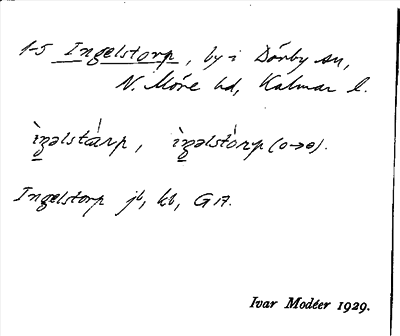 1-5 Ingelstorp, by i Dörby sn,
N. Möre hd, Kalmar l.
Ingelstorp jb, kb, GA.
Ivar Modéer 1929.